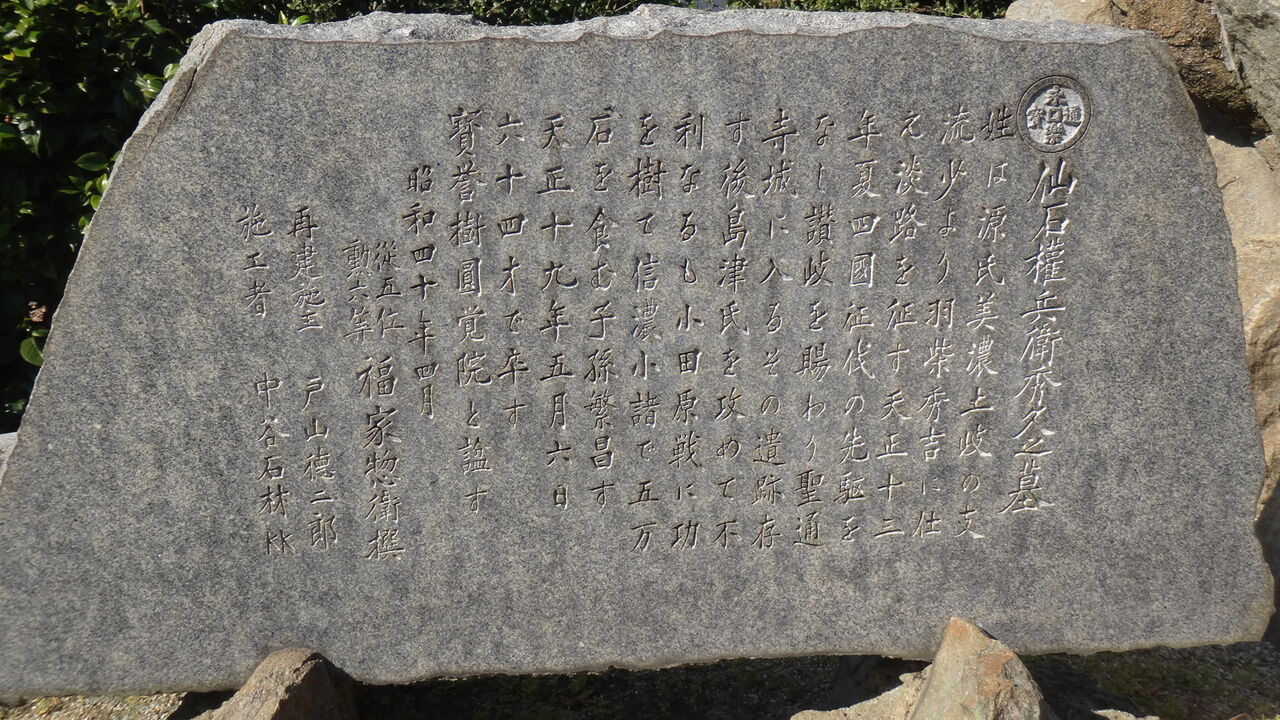 永樂通寳
仙石權兵衛秀久之墓
姓は源氏美濃土岐の支
流少より羽柴秀吉に仕
え淡路を征す天正十三
年夏四國征伐の先駆を
なし讃岐を賜わり聖通
寺城に入るその遺跡存
す後島津氏を攻めて不
利なるも小田原戦に功
を樹て信濃小諸で五万
石を食む子孫繁昌す
天正十九年五月六日
六十四才で卒す
寳誉樹圓覚院と諡す
昭和四十年四月
從五位
勳六等
福家惣衛撰
再建施主 戸山徳二郎
施工者 中谷石材KK